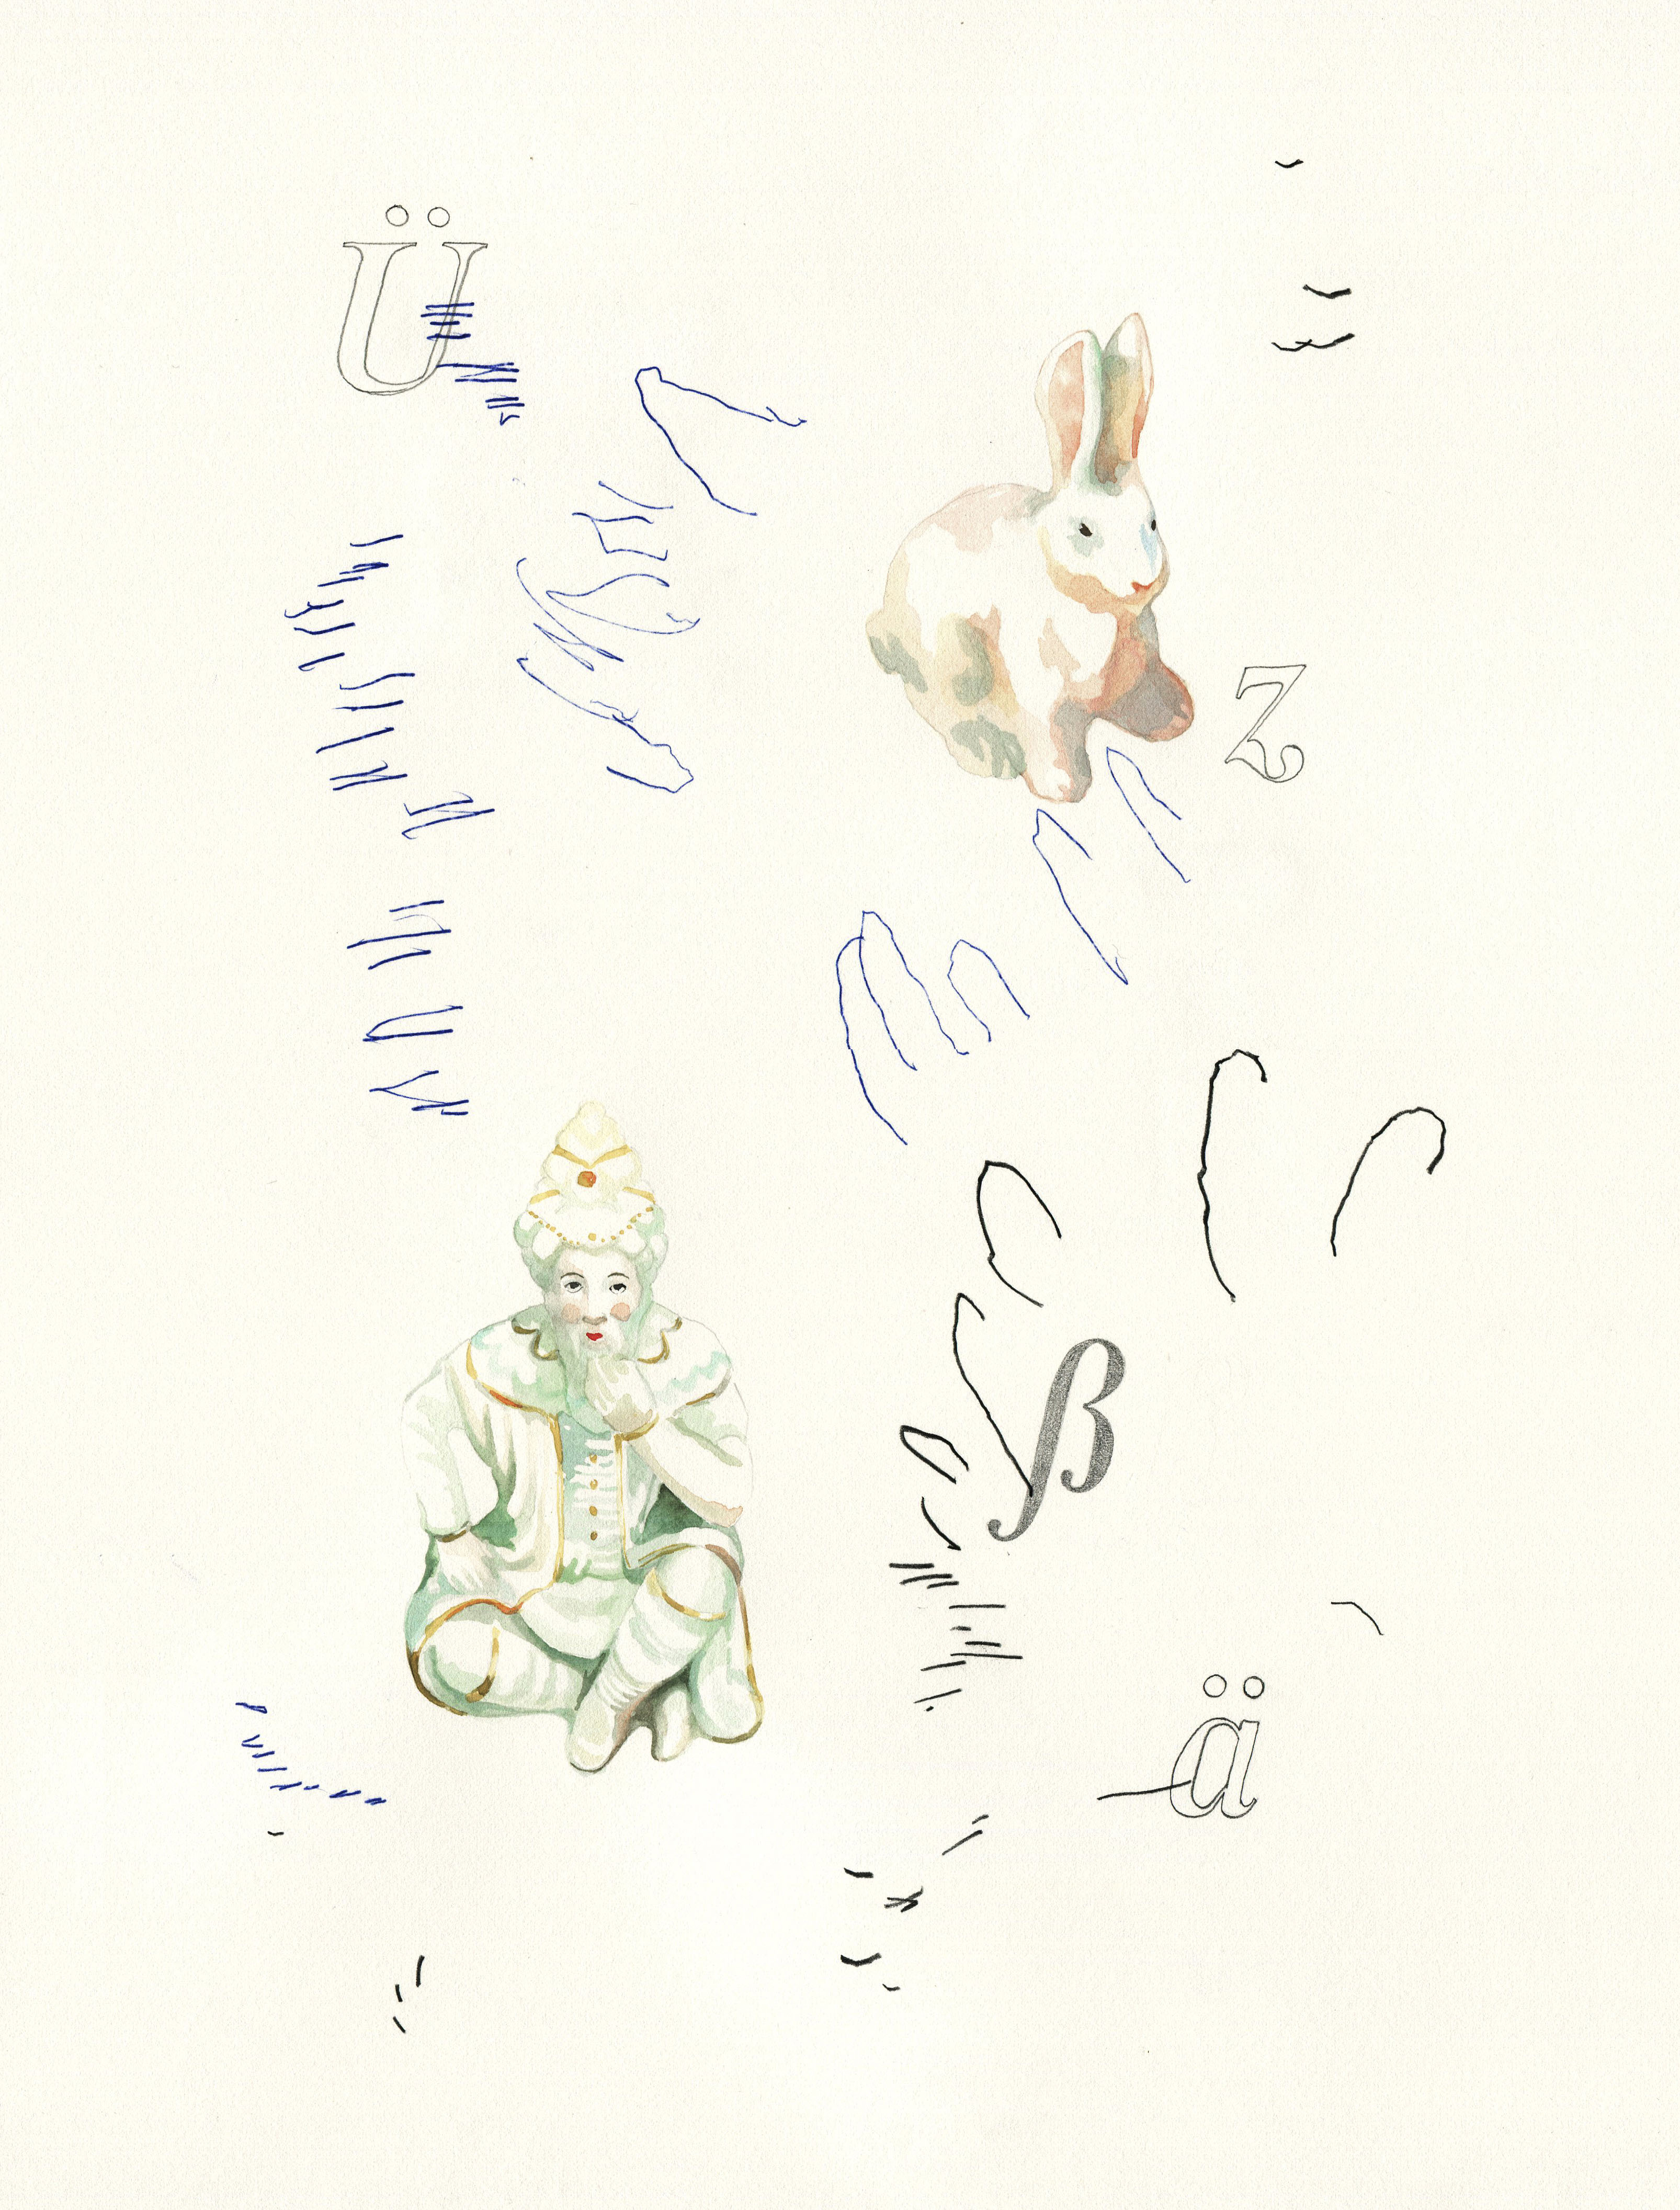 Ü
z
ß
ä